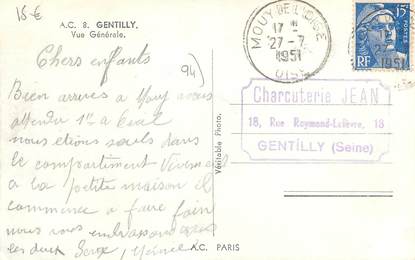 15 €
A.C. 8. GENTILLY.
Vue Générale.
MOUY DE L'OISE
17
27-7
1951
OISE
15F
RF
1951
Chers enfants
94
Bien arrivés a Mouy avons
attendu
nous etions seuls dans
le compartiment
a la petite maison il
commence a faire faim
nous vous embrassons
les deux Serge,
Charcuterie JEAN
18, Rue Raymond-Lefèvre, 18
GENTILLY (Seine)
Véritable Photo.
A.C. PARIS